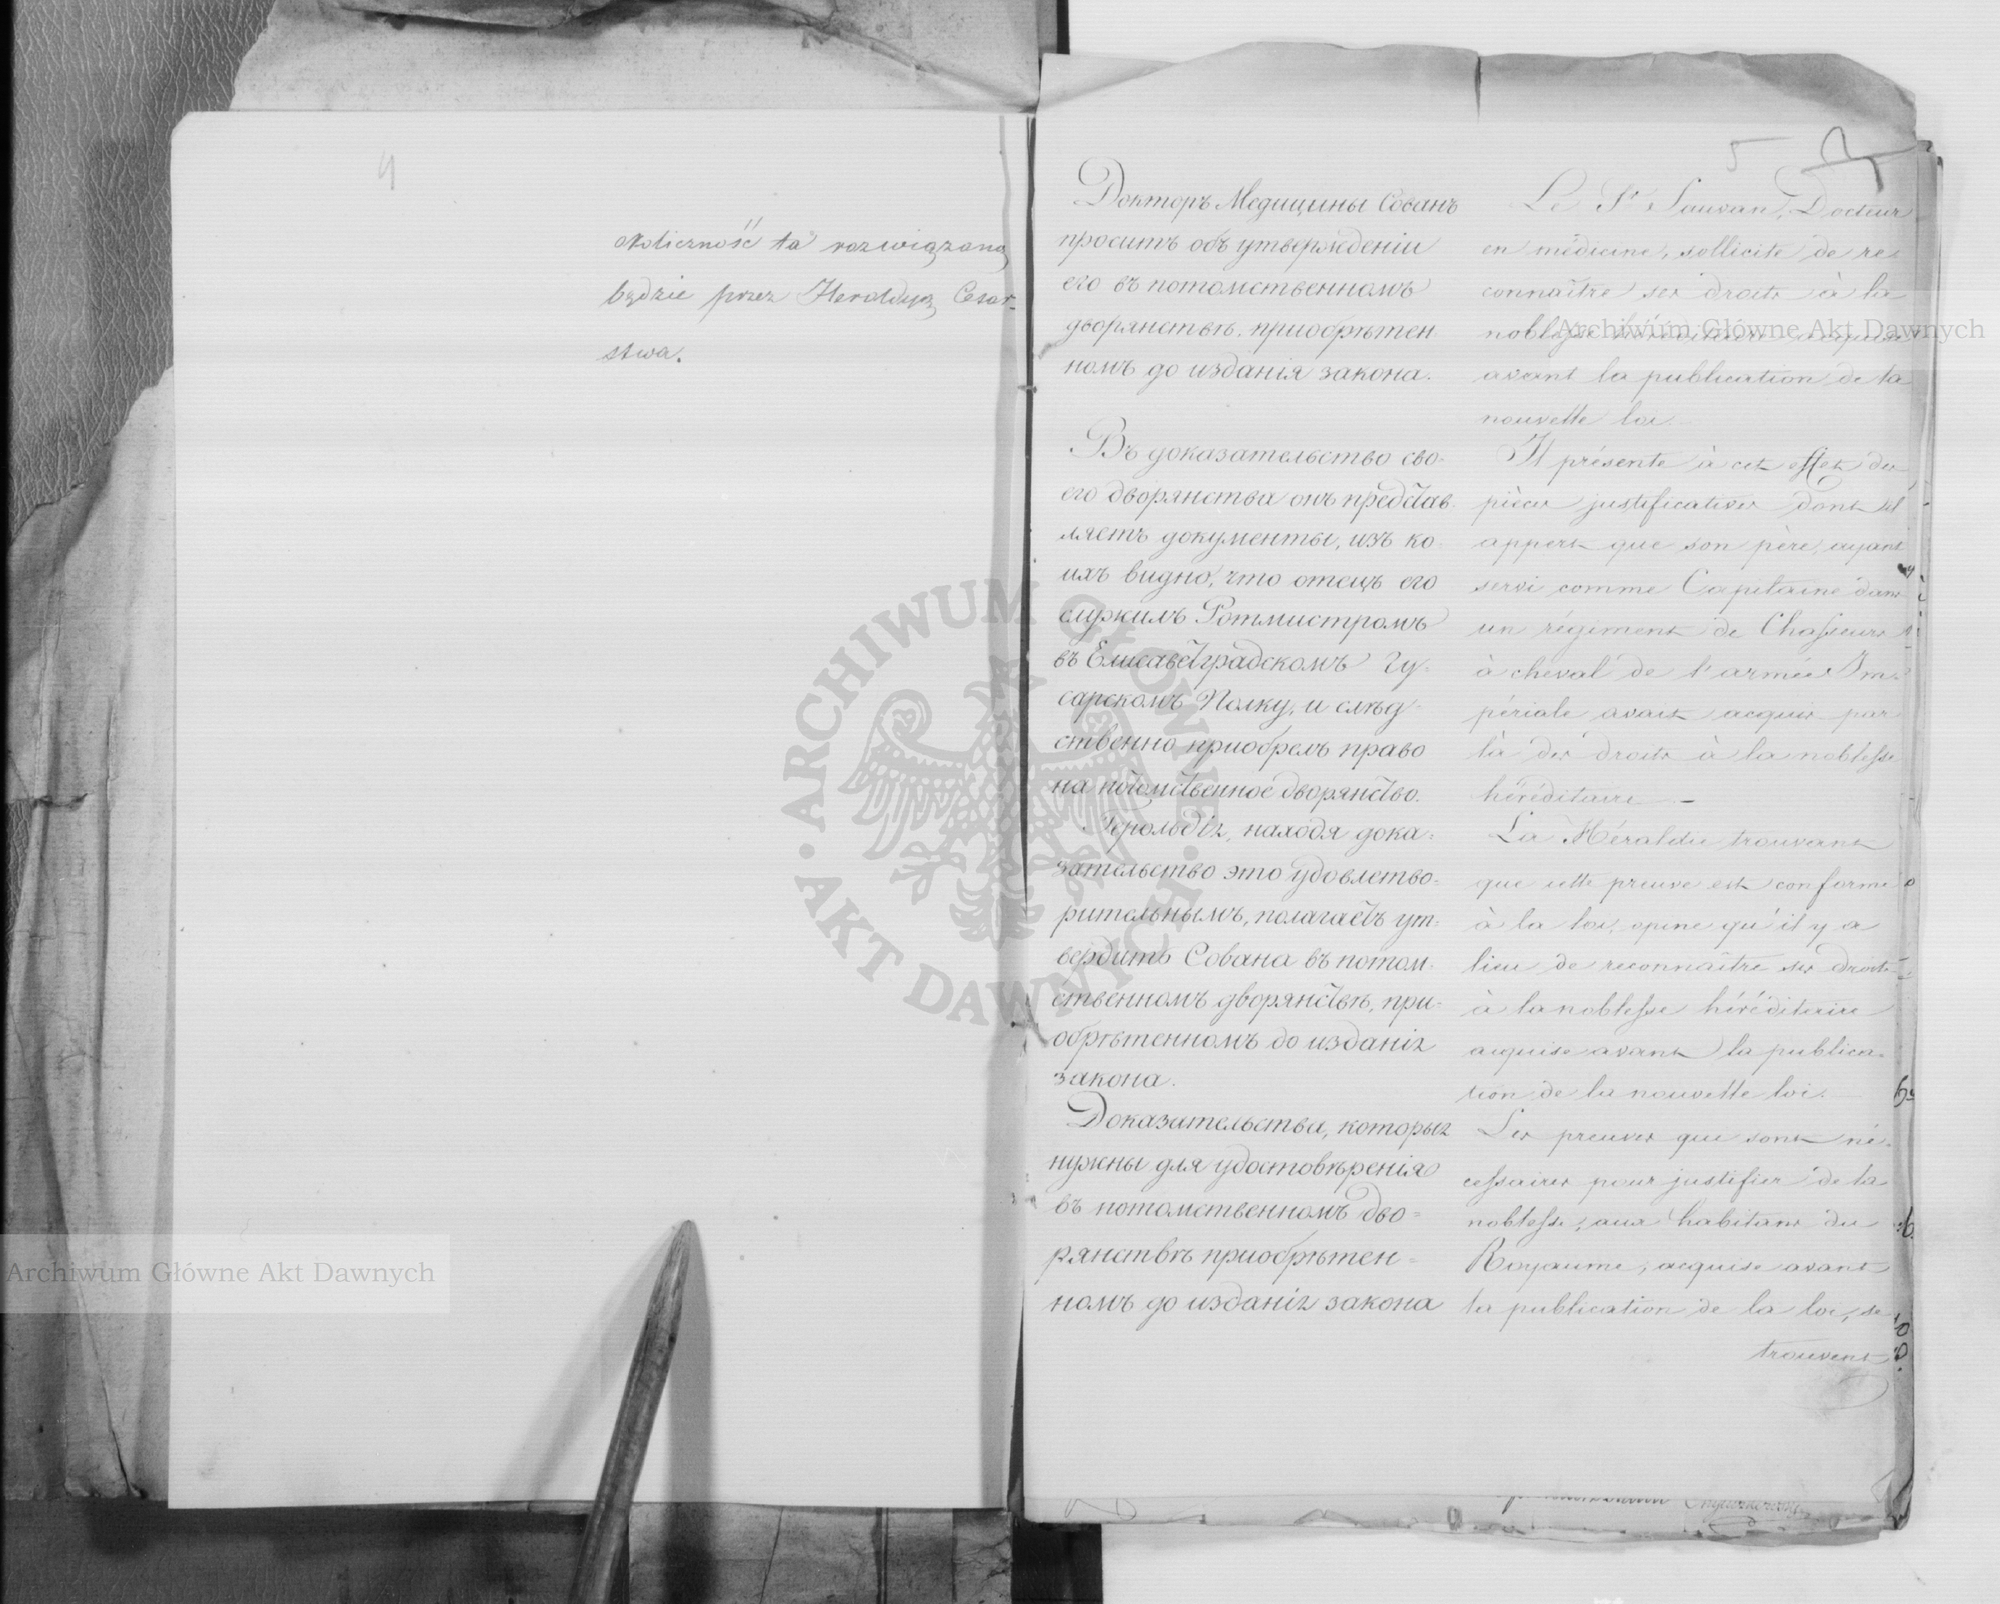 4
okoliczność ta rozwiązaną
będzie przez Heroldyą Cesar-
stwa.
5
Докторъ Медицины Сованъ
проситъ объ утвержденіи
его въ потомственномъ
дворянствѣ, приобрѣтен
номъ до изданія закона.
Въ доказательство сво-
его дворянства онъ представ
ляетъ документы, изъ ко
ихъ видно, что отецъ его
служилъ Ротмистромъ
въ Елисаветградскомъ Гу-
сарскомъ Полку, и слѣд-
ственно приобрелъ право
на потомственное дворянство.
Герольдія, находя дока-
зательство это удовлетво-
рительнымъ, полагаетъ ут-
вердить Сована въ потом-
ственномъ дворянствѣ, при-
обрѣтенномъ до изданія
закона.
Доказательства, которыя
нужны для удостовѣренія
въ потомственномъ дво-
рянствѣ приобрѣтен-
номъ до изданія закона
Le Sr Sauvan, Docteur
en médecine, sollicite de re-
connaître ses droits à la
noblesse héréditaire acquise
avant la publication de la
nouvelle loi.
Il présente à cet effet des
pièces justificatives dont il
appert que son père, ayant
servi comme Capitaine dans
un régiment de Chasseurs
à cheval de l'armée Im-
périale avait acquis par
là des droits à la noblesse
héréditaire.-
La Héraldie trouvant
que cette preuve est conforme
à la loi, opine qu'il y a
lieu de reconnaître ses droits
à la noblesse héréditaire
acquise avant la publica-
tion de la nouvelle loi.
Les preuves que sont né-
cessaires pour justifier de la
noblesse, aux habitans du
Royaume, acquise avant
la publication de la loi, se
trouvent
Archiwum Główne Akt Dawnych
Archiwum Główne Akt Dawnych
ARCHIWUM GŁÓWNE · AKT DAWNYCH ·